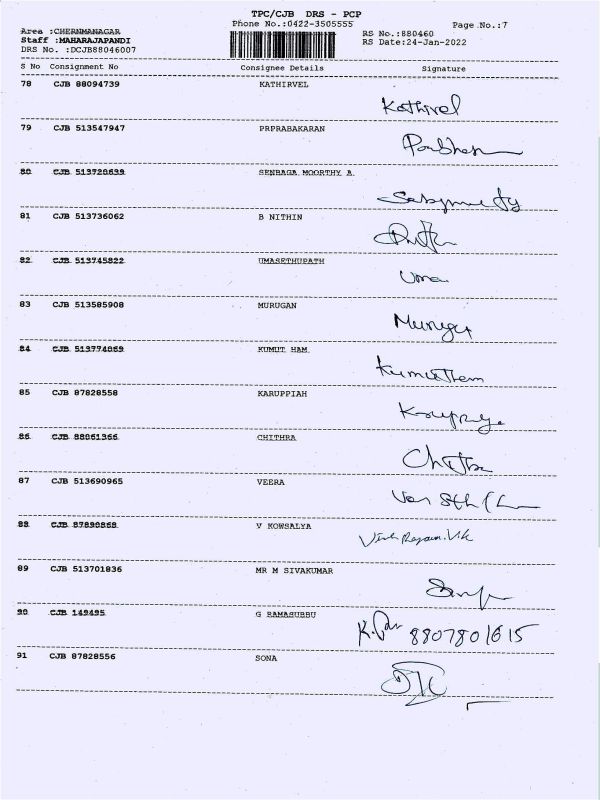 TPC/CJB DRS - PCP
Phone No.:0422-3505555
Page No.:7
Area :CHERNMANAGAR
Staff :MAHARAJAPANDI
DRS No. :DCJB88046007
RS No.:880460
RS Date:24-Jan-2022
S No Consignment No Consignee Details Signature
78 CJB 88094739 KATHIRVEL
Kathirvel
79 CJB 513547947 PRPRABAKARAN
80 CJB 513720639 SENBAGA MOORTHY A
81 CJB 513736062 B NITHIN
82 CJB 513745822 UMASETHUPATH
Uma
83 CJB 513585908 MURUGAN
84 CJB 513774069 KUMUT HAM
85 CJB 87828558 KARUPPIAH
86 CJB 88061366 CHITHRA
Chithra
87 CJB 513690965 VEERA
88 CJB 87890868 V KOWSALYA
89 CJB 513701836 MR M SIVAKUMAR
90 CJB 149495 G RAMASUBBU
8807801615
91 CJB 87828556 SONA